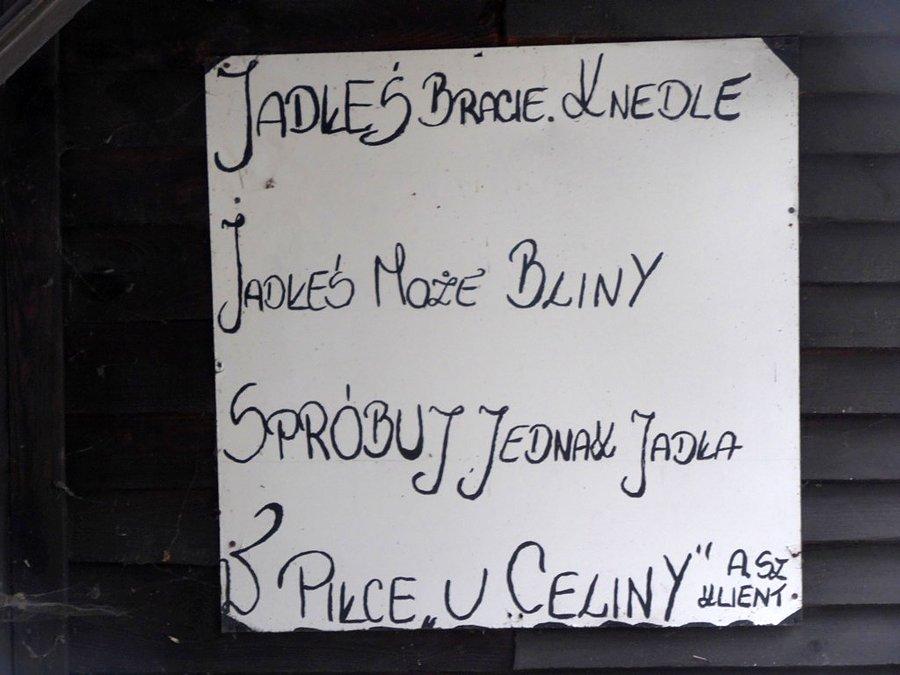 JADŁEŚ BRACIE. KNEDLE
JADŁEŚ MOŻE BLINY
SPRÓBUJ JEDNAK JADŁA
PIŁCE „U CELINY”
A.SZ
KLIENT